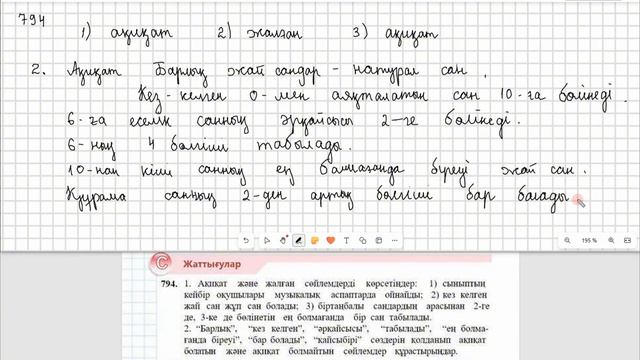 794
1) ақиқат 2) жалған 3) ақиқат
2. Ақиқат Барлық жай сандар - натурал сан.
Кез-келген 0-мен аяқталатын сан 10-ға бөлінеді.
6-ға еселік санның әрқайсысы 2-ге бөлінеді.
6-ның 4 бөлгіші табылады.
10-нан кіші санның ең болмағанда біреуі жай сан.
Құрама санның 2-ден артық бөлгіші бар болады
195 %
C Жаттығулар
794. 1. Ақиқат және жалған сөйлемдерді көрсетіңдер: 1) сыныптың
кейбір оқушылары музыкалық аспаптарда ойнайды; 2) кез келген
жай сан жұп сан болады; 3) біртаңбалы сандардың арасынан 2-ге
де, 3-ке де бөлінетін ең болмағанда бір сан табылады.
2. "Барлық", "кез келген", "әрқайсысы", "табылады", "ең болма-
ғанда біреуі", "бар болады", "қайсыбірі" сөздерін қолданып ақиқат
болатын және ақиқат болмайтын сөйлемдер құрастырыңдар.